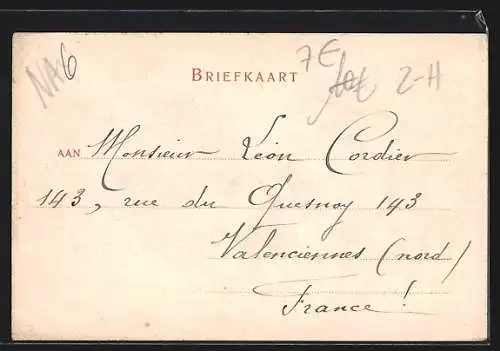 NA6
7€
2-H
BRIEFKAART
AAN Monsieur Léon Cordier
143, rue du Quesnoy 143
Valenciennes (nord)
France!